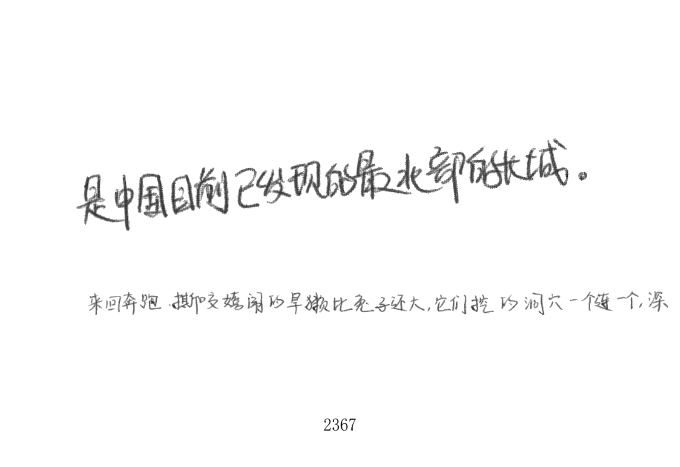 是中国目前已发现的最北部的长城。
来回奔跑、撕咬嬉闹的旱獭比兔子还大,它们挖的洞穴一个连一个,深
2367